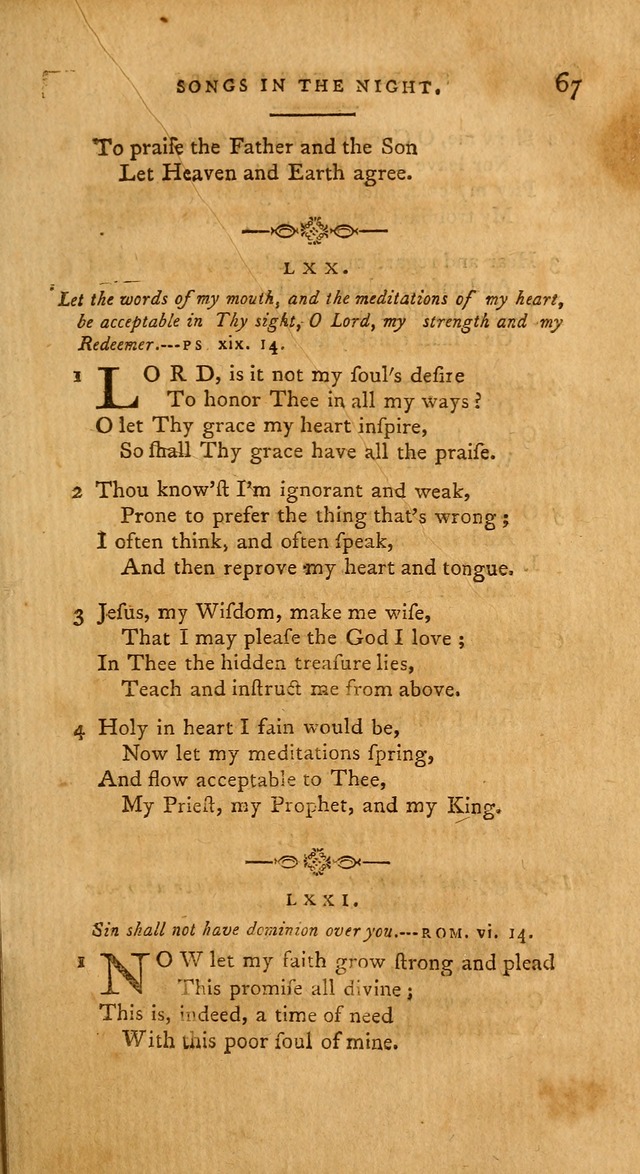 SONGS IN THE NIGHT. 67
To praiſe the Father and the Son
Let Heaven and Earth agree.
LXX.
Let the words of my mouth, and the meditations of my heart,
be acceptable in Thy sight, O Lord, my strength and my
Redeemer.---PS xix. 14.
1 LORD, is it not my ſoul's deſire
To honor Thee in all my ways?
O let Thy grace my heart inſpire,
So ſhall Thy grace have all the praiſe.
2 Thou know'ſt I'm ignorant and weak,
Prone to prefer the thing that's wrong;
I often think, and often ſpeak,
And then reprove my heart and tongue.
3 Jeſus, my Wiſdom, make me wiſe,
That I may pleaſe the God I love;
In Thee the hidden treaſure lies,
Teach and inſtruct me from above.
4 Holy in heart I fain would be,
Now let my meditations ſpring,
And flow acceptable to Thee,
My Prieſt, my Prophet, and my King.
LXXI.
Sin shall not have dominion over you.---ROM. vi. 14.
1 NOW let my faith grow ſtrong and plead
This promiſe all divine;
This is, indeed, a time of need
With this poor ſoul of mine.